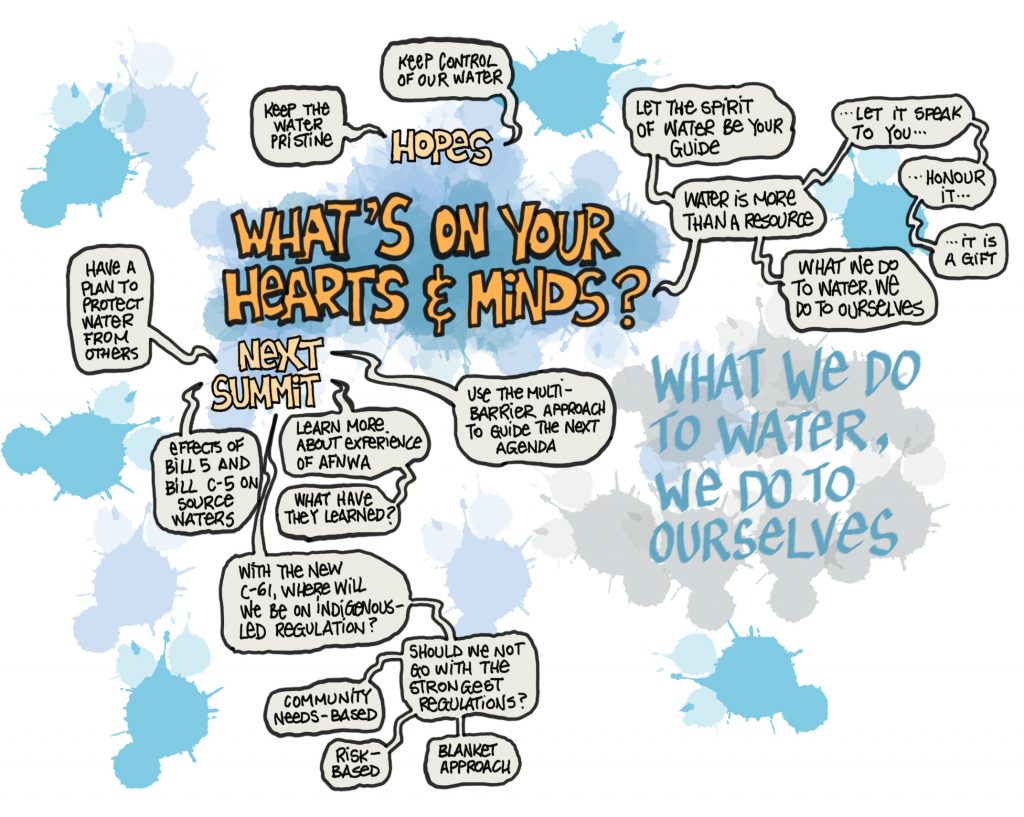 KEEP CONTROL
OF OUR WATER
KEEP THE
WATER
PRISTINE
HOPES
WHAT'S ON YOUR
HEARTS & MINDS?
LET THE SPIRIT
OF WATER BE YOUR
GUIDE
...LET IT SPEAK
TO YOU...
...HONOUR
IT...
...IT IS
A GIFT
WATER IS MORE
THAN A RESOURCE
WHAT WE DO
TO WATER, WE
DO TO OURSELVES
WHAT WE DO
TO WATER,
WE DO TO
OURSELVES
NEXT
SUMMIT
HAVE A
PLAN TO
PROTECT
WATER
FROM
OTHERS
EFFECTS OF
BILL 5 AND
BILL C-5 ON
SOURCE
WATERS
LEARN MORE
ABOUT EXPERIENCE
OF AFNWA
WHAT HAVE
THEY LEARNED?
USE THE MULTI-
BARRIER APPROACH
TO GUIDE THE NEXT
AGENDA
WITH THE NEW
C-61, WHERE WILL
WE BE ON INDIGENOUS-
LED REGULATION?
SHOULD WE NOT
GO WITH THE
STRONGEST
REGULATIONS?
COMMUNITY
NEEDS-BASED
RISK-
BASED
BLANKET
APPROACH